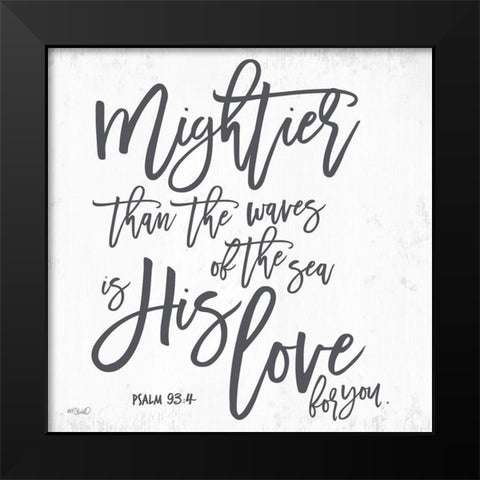 Mightier
than the waves
of the sea
is His love
for you.
PSALM 93:4